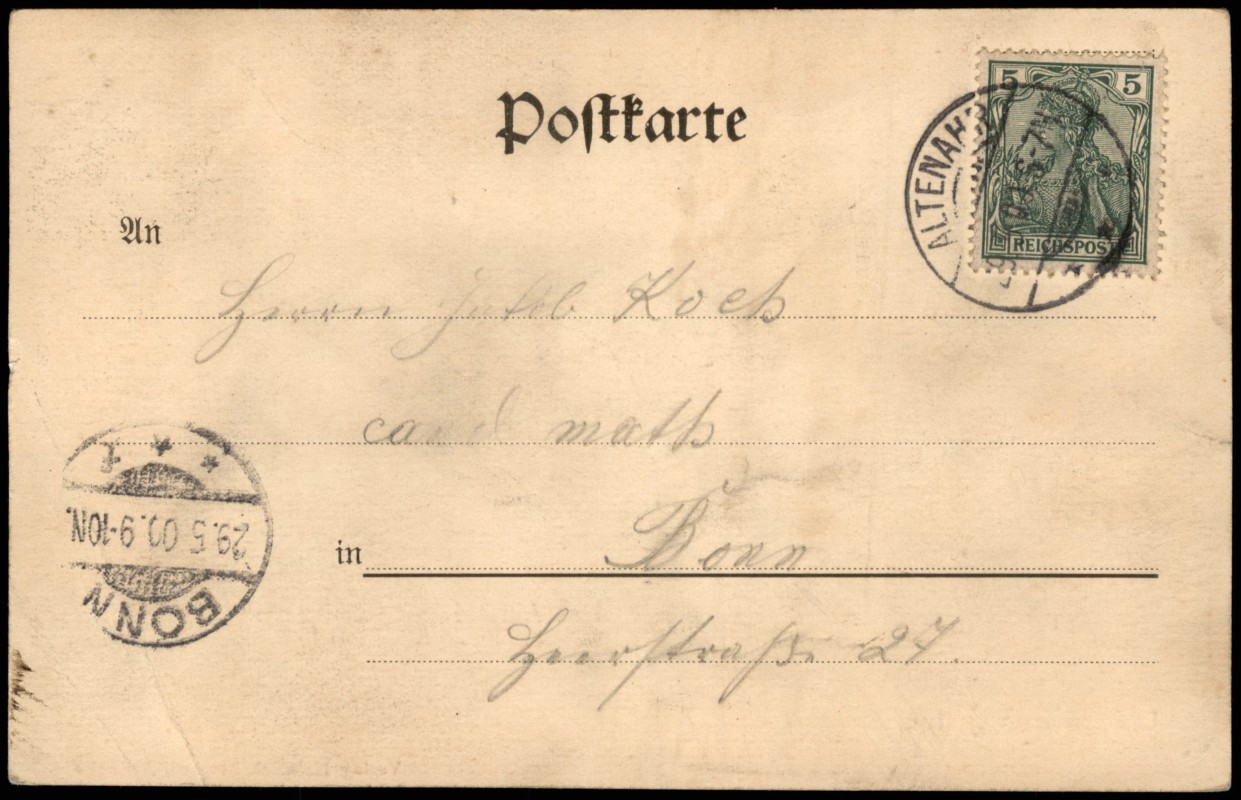 Postkarte
5 5
REICHSPOST
ALTENAHR
5-7N
An
Herrn Jakob Koch
cand math
in Bonn
Heerstraße 27.
BONN
29.5.00.9-10N.
* * * f